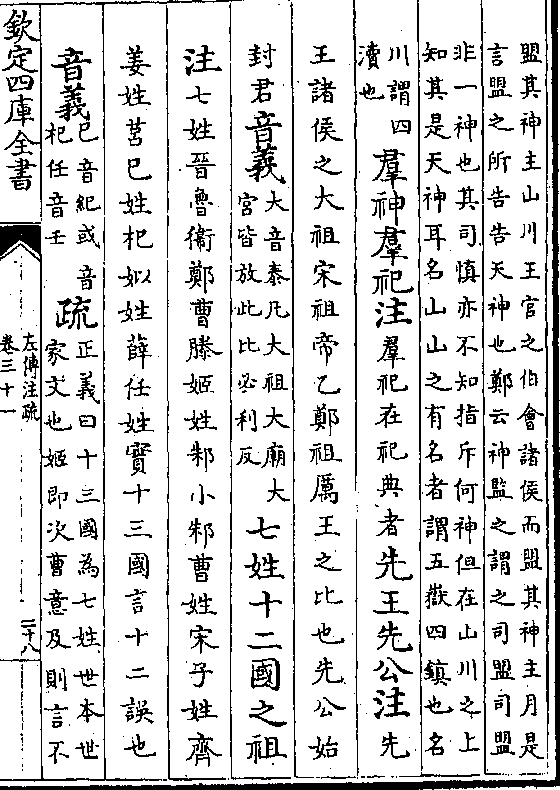 盟其神主山川王官之伯會諸侯而盟其神主月是
言盟之所告告天神也鄭云神監之謂之司盟司盟
非一神也其司慎亦不知指斥何神但在山川之上
知其是天神耳名山山之有名者謂五嶽四鎮也名
川謂四
瀆也
羣神羣祀注羣祀在祀典者先王先公注先
王諸侯之大祖宋祖帝乙鄭祖厲王之比也先公始
封君音義
大音泰凡大祖大廟大
宮皆放此比必利反
七姓十二國之祖
注七姓晉魯衞鄭曹滕姬姓邾小邾曹姓宋子姓齊
姜姓莒巳姓杞姒姓薛任姓實十三國言十二誤也
音義
巳音紀或音
杞任音壬
疏
正義曰十三國為七姓世本世
家文也姬即次曹意及則言不
欽定四庫全書
左傳注疏
卷三十一
二十八